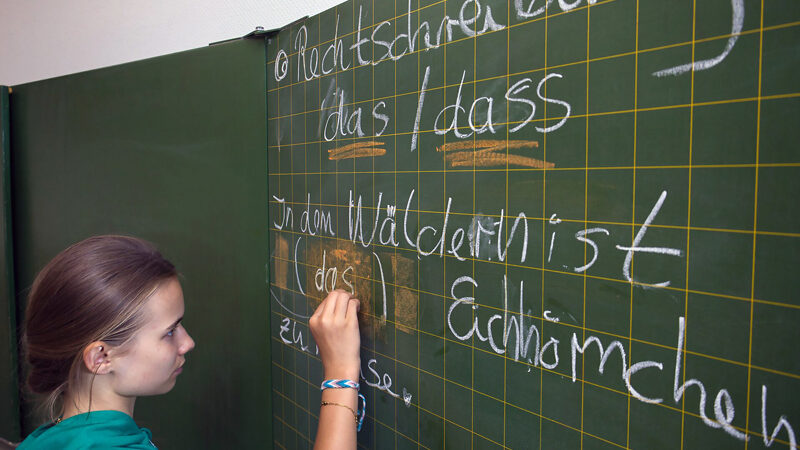 Rechtschreibung
das/dass
In den Wäldern ist
(das) Eichhörnchen
zu Hause.